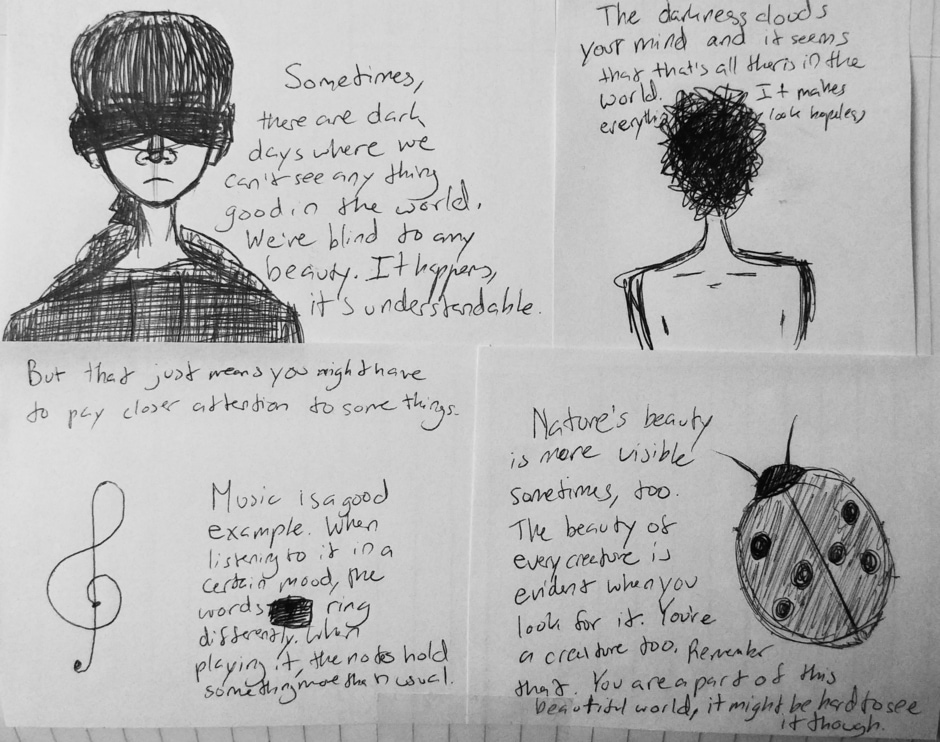 Sometimes,
there are dark
days where we
can't see any thing
good in the world.
We're blind to any
beauty. It happens,
it's understandable.
The darkness clouds
your mind and it seems
that that's all theris in the
world. It makes
everything look hopeless
But that just means you might have
to pay closer attention to some things.
Music is a good
example. When
listening to it in a
certain mood, the
words ring
differently. When
playing it, the notes hold
something more than usual.
Nature's beauty
is more visible
sometimes, too.
The beauty of
every creature is
evident when you
look for it. You're
a creature too. Remember
that. You are a part of this
beautiful world, it might be hard to see
it though.